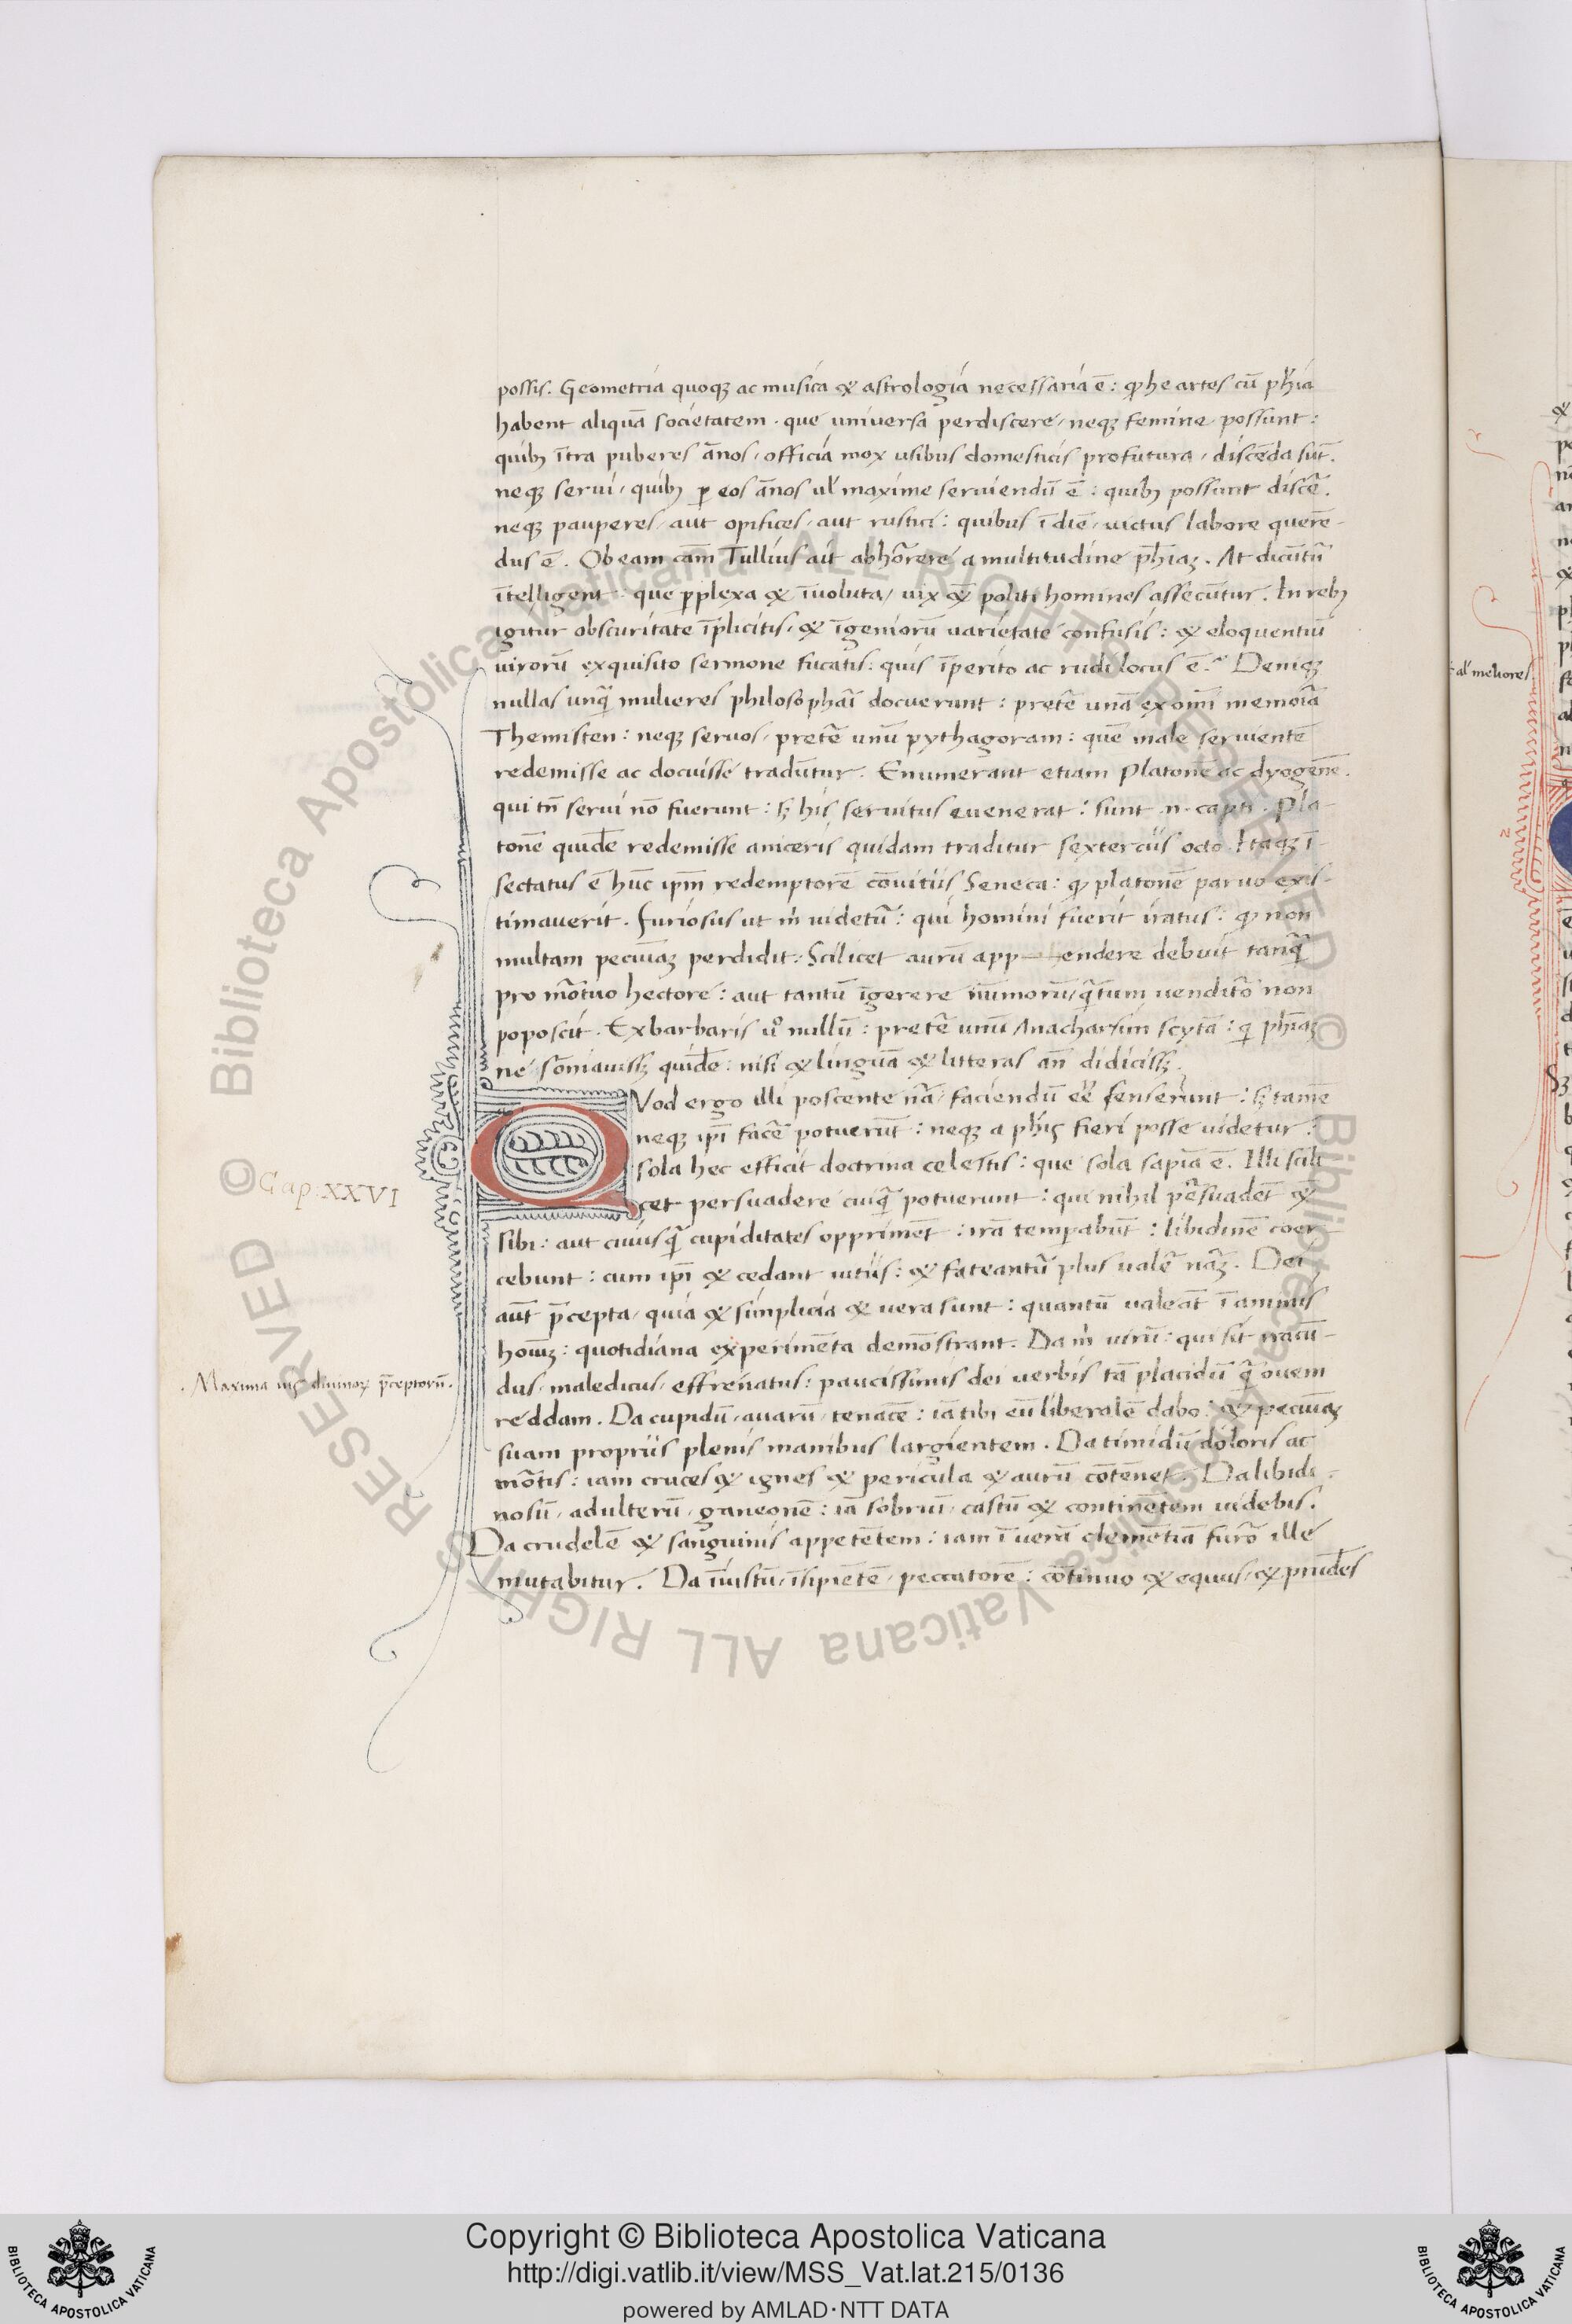 possis. Geometria quoqꝫ ac musica & astrologia necessaria ē: ꝙ he artes cū phīa
habent aliquā societatem. que universa perdiscere, neqꝫ femine possunt:
quibꝫ ītra puberes ānos, officia mox usibus domesticis profutura, discēda sūt.
neqꝫ servi, quibꝫ ꝑ eos ānos ul' maxime serviendū ē: quibꝫ possunt discē.
neqꝫ pauperes, aut opifices, aut rustici: quibus ī diē, victus labore querē-
dus ē. Ob eam cām Tullius ait abhōrere a multitudine phīaꝫ. At dicūtū
ītelligent: que ꝑplexa & īvoluta, vix qꝫ politi homines assecūtur. In rebꝫ
igitur obscuritate īplicitis, & īgeniorū varietate confusis: & eloquentiū
virorū exquisito sermone fucatis: quis īperito ac rudi locus ē? Deniqꝫ
nullas unq̄ mulieres philosophāi docuerunt: pretē unā ex omī memoīā
Themisten: neqꝫ servos, pretē unū pythagoram: quē male serviente
redemisse ac docuisse tradūtur. Enumerant etiam Platonē ac dyogenē.
qui tn̄ servi nō fuerunt: sꝫ his servitus evenerat: sunt .n. capti. Pla-
tonē quidē redemisse aniceris quidam traditur sextertiis octo. Itaqꝫ ī-
sectatus ē hūc ipm̄ redemptorē cōvitiis Seneca: ꝙ platonē parvo exis-
timaverit. furiosus ut m' videtū: qui homini fuerit iratus: ꝙ non
multam pecuīaꝫ perdidit: Scilicet aurū app—endere debuit tanq̄
pro mōtuo hectore: aut tantū īgerere nūmorū, q̄tum venditō non
poposcit. Ex barbaris uº nullū: pretē unū Anacharsim scytā: q phīaꝫ
ne sōniavissꝫ quidē: nisi & linguā & litteras an̄ didicissꝫ.
QVod ergo illi poscente nā, faciendū eē senserunt: sꝫ tamē
neqꝫ ipī facē potuerūt: neqꝫ a phīs fieri posse videtur:
sola hec efficit doctrina celestis: que sola sapiā ē. Illi scili
cet persuadere cuiq̄ potuerunt: qui nihil pēsuadēt qꝫ
sibi: aut cuiusq̄ cupiditates opprimēt: irā tempabūt: libidinē coer
cebunt: cum ipī & cedant vitiis: & fateantū plus valē nāꝫ. Dei
aūt p̄cepta, quia & simplicia & vera sunt: quantū valeāt ī animis
hoīuꝫ: quotidiana experimēta demōstrant. Da m' virū: qui sit iracū-
dus, maledicus, effrenatus: paucissimis dei verbis tā placidū q̄ ovem
reddam. Da cupidū, avarū, tenacē: iā tibi eū liberalē dabo: & pecuīaꝫ
suam propriis plenis manibus largientem. Da timidū doloris ac
mōtis: iam cruces & ignes & pericula & aurū cōtēnet. Da libidi-
nosū, adulterū, ganeonē: iā sobriū, castū & continētem videbis.
Da crudelē & sanguinis appetētem: iam ī verā clemētiā furō ille
mutabitur. Da īiustū, īsipiētē, peccatorē: cōtinuo & equus, & prudēs
Cap. XXVI
Maxima vis divinoꝝ p̄ceptorū.
al' meliores
Copyright © Biblioteca Apostolica Vaticana
http://digi.vatlib.it/view/MSS_Vat.lat.215/0136
powered by AMLAD·NTT DATA
BIBLIOTECA APOSTOLICA VATICANA
BIBLIOTECA APOSTOLICA VATICANA
© Biblioteca Apostolica Vaticana ALL RIGHTS RESERVED © Biblioteca Apostolica Vaticana ALL RIGHTS RESERVED